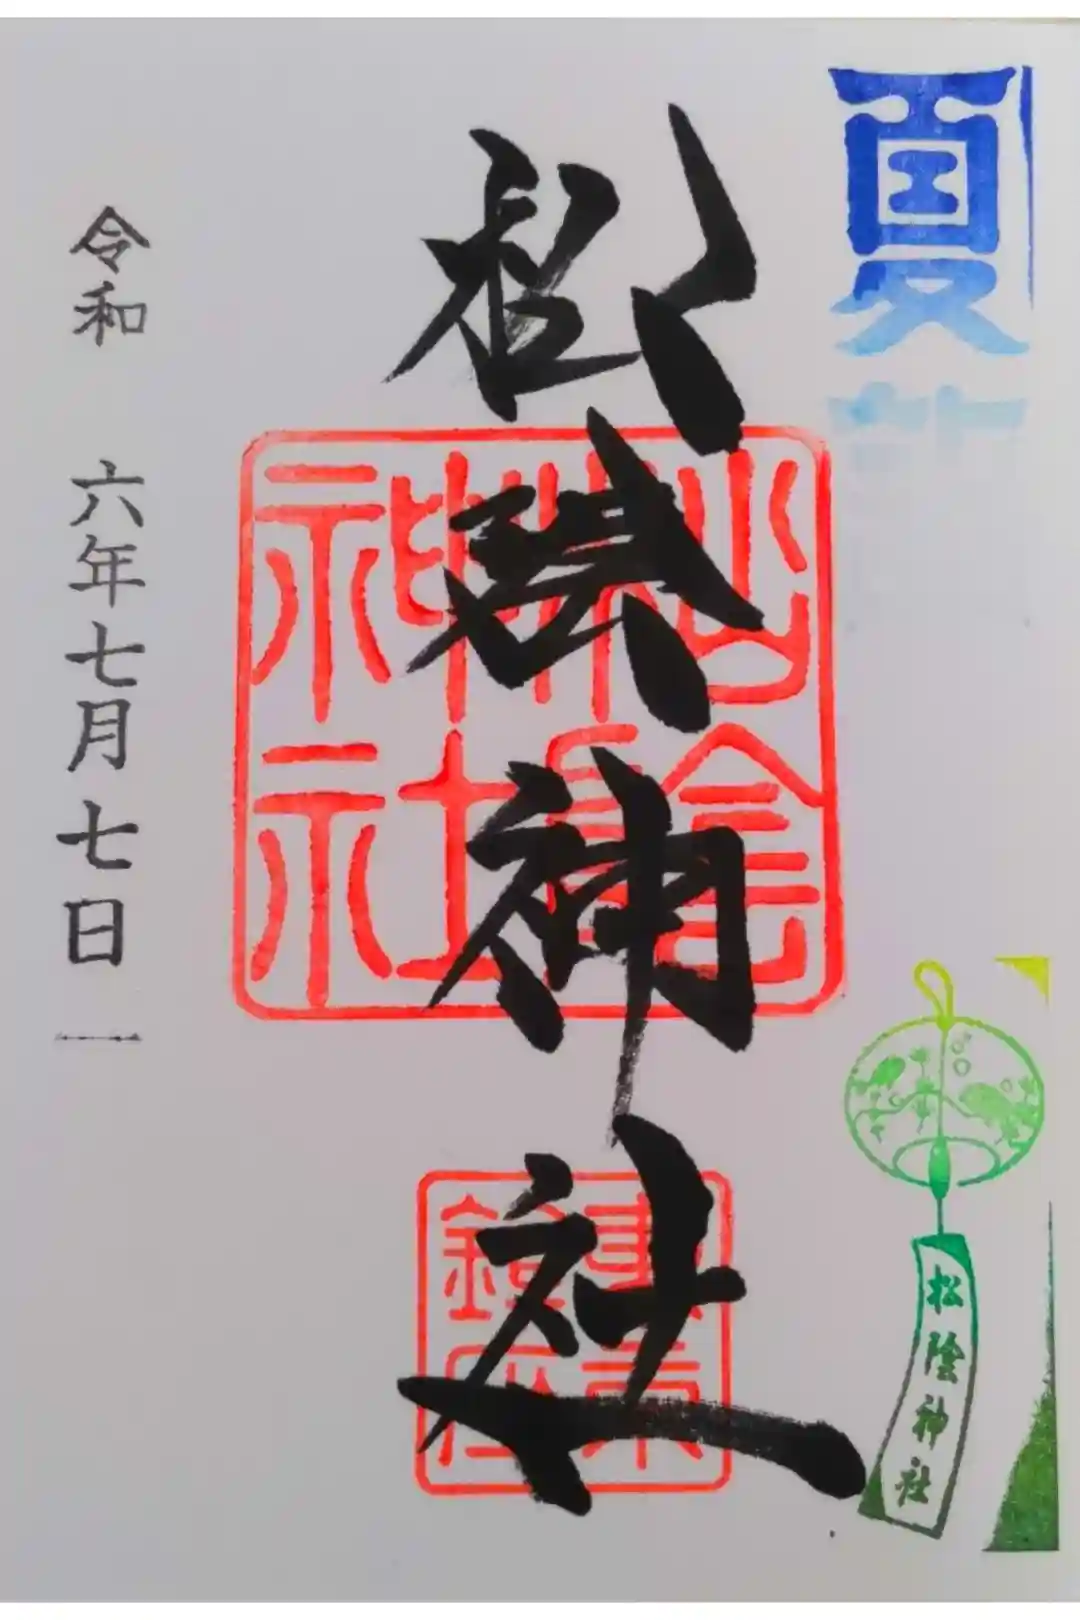 夏詣
松陰神社
松陰神社
松陰神社
東京
鎮座
松陰神社
令和 六年七月七日